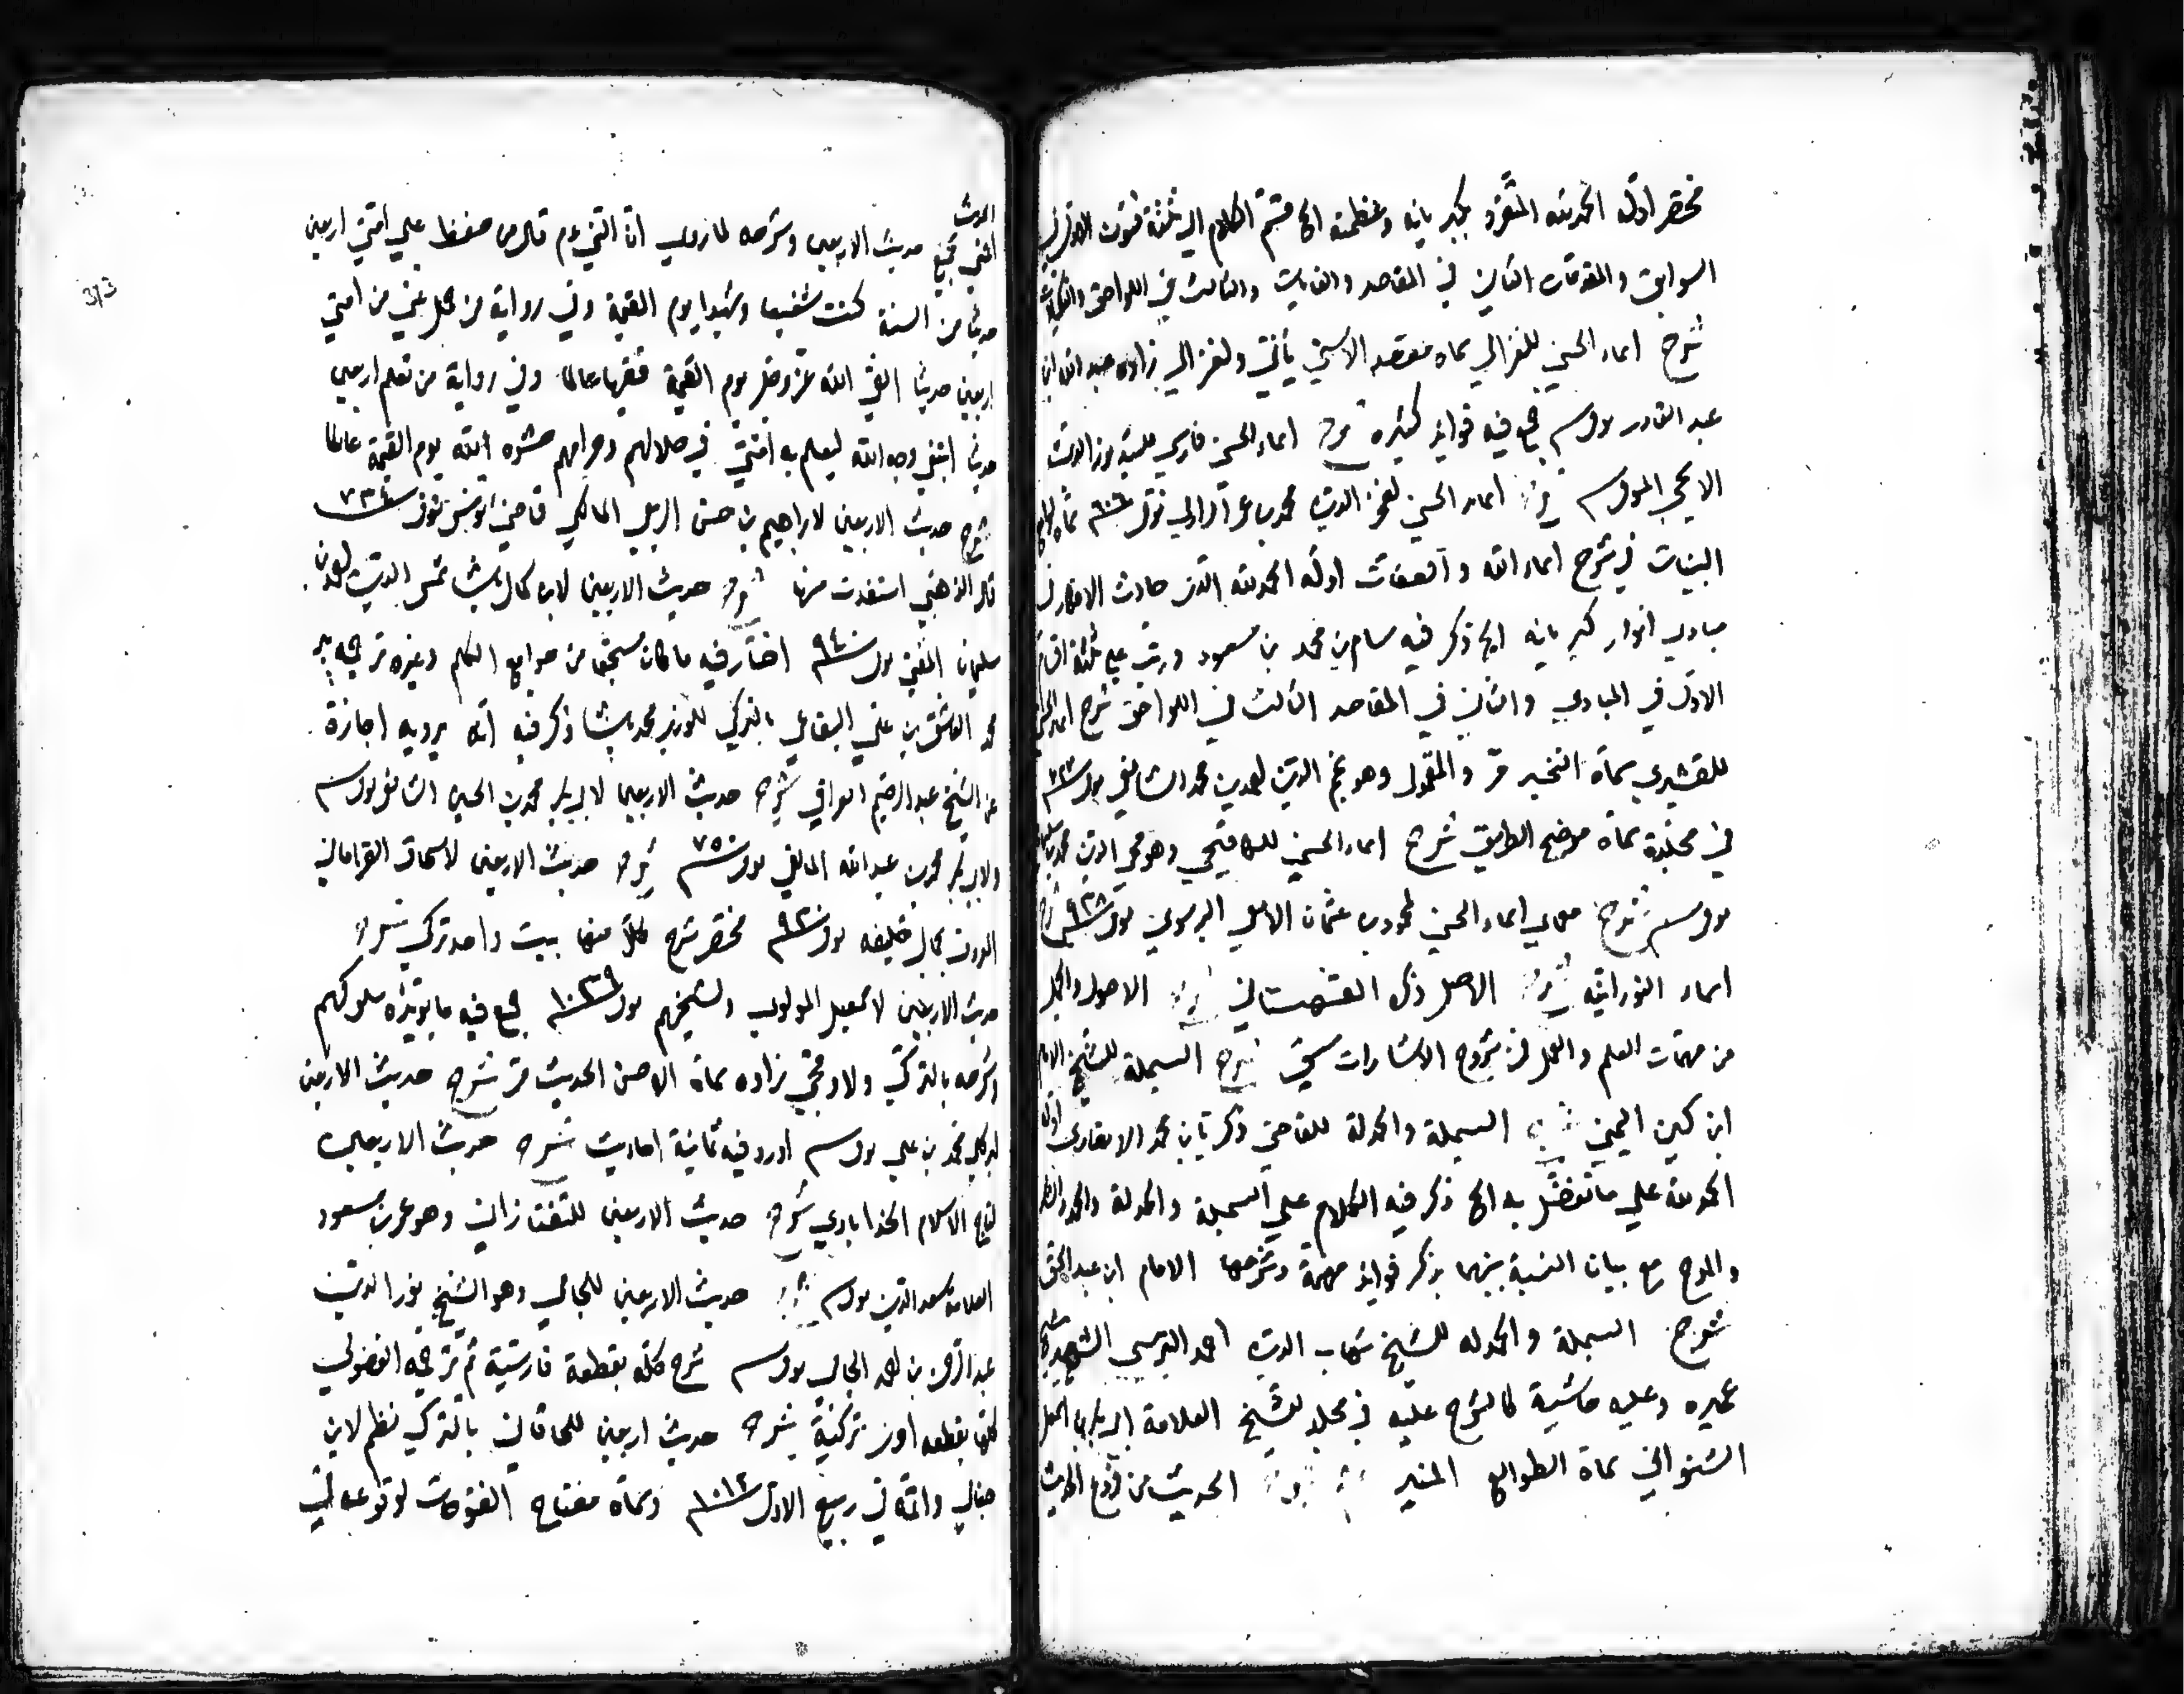 مختصر اوله الحمد لله المتفرد بكبريائه وعظمته الخ قسم الكلام الى ثلثة فنون الاول في
السوابق والمقدمات الثاني في المقاصد والغايات والثالث في اللواحق والتكملات
شرح اسماء الحسنى للغزالي سماه مقصد الاسنى يأتي ولغزالي زاده عبد الله بن
عبد القادر سنه جمع فيه فوايد كثيره شرح اسماء الحسنى فارسي
الايجي المتوفى سنه شرح اسماء الحسنى لفخر الدين محمد بن عمر الرازي توفى ٦٠٦ سماه لوامع
البينات في شرح اسماء الله والصفات اوله الحمد لله الذي حارت الافكار في
مبادي انوار كبريائه الخ ذكر فيه سام بن محمد بن مسعود ورتب على ثلثة اقسام
الاول في المبادي والثاني في المقاصد الثالث في اللواحق شرح اسماء الحسنى
للقشيري سماه التخبير مر والقمولي وهو نجم الدين احمد بن محمد الشافعي
في مجلدة سماه موضح الطريق شرح اسماء الحسنى للكافيجي وهو محيي الدين محمد بن سليمان
سنه شرح معاني اسماء الحسنى لمحمود بن عثمان اللامعي البرسوي ٩٣٨ شرح
اسماء النورانيه شرح الاصل ذكر القهستاني شرح الاصول والجمل
من مهمات العلم والعمل في شروح الاشارات شرح البسملة للشيخ الامام
ابن كبن اليمني شرح البسملة والحمدلة للقاضي زكريا بن محمد الانصاري اوله
الحمد لله على ما تفضل به الخ ذكر فيه الكلام على البسملة والحمدلة والحمد والشكر
والمدح مع بيان النسبة بينها بذكر فوايد مهمة وشرحها الامام ابن عبد الحق
شرح البسملة والحمدله للشيخ شهاب الدين احمد البرلسي الشهير بالشيخ
عميره وعليه حاشية كالشرح عليه في مجلد للشيخ العلامة ابي بكر بن اسمعيل
الشنواني سماه الطوالع المنير شرح الحديث من فروع الحديث
الحديث
اعني جمع حديث الاربعين وشرحه لما روي ان النبي عم قال من حفظ على امتي اربعين
حديثا من السنة كنت شفيعا وشهيدا يوم القيمة وفي رواية من حمل عني من امتي
اربعين حديثا لقي الله عز وجل يوم القيمة فقيها عالما وفي رواية من تعلم اربعين
حديثا ابتغى وجه الله ليعلم به امتي في حلالهم وحرامهم حشره الله يوم القيمة عالما
شرح حديث الاربعين لابراهيم بن حسن الربعي المالكي قاضي تونس توفى ٧٣٤
قال الذهبي استفدت منها شرح حديث الاربعين لابن كمال باشا شمس الدين احمد بن
سليمان المفتي ٩٤٠ اختار فيه ما كان مسجعا من جوامع الكلم وغيره ترجمه
محمد العاشق بن علي البقاعي بالتركي للوزير محمد باشا ذكر فيه انه يرويه اجازة
عن الشيخ عبد الرحيم العراقي شرح حديث الاربعين لابي بكر محمد بن الحسين الشافعي سنه
ولابي بكر محمد بن عبد الله المالقي ٧٥٠ شرح حديث الاربعين لاسحاق القراماني
المعروف بجمال خليفه ٩٣٠ مختصر شرح كلا منها ببيت واحد تركي شرح
حديث الاربعين لاسمعيل المولوي وشيخهم ١٠٣٩ جمع فيه ما يؤيده سلوكهم
وشرحه بالتركي ولاوقجي زاده سماه احسن الحديث مر شرح حديث الاربعين
لبركلي محمد بن علي سنه اورد فيه ثمانية احاديث شرح حديث الاربعين
لتاج الاسلام الخدابادي شرح حديث الاربعين للتفتازاني وهو عمر بن مسعود
العلامة سعد الدين سنه شرح حديث الاربعين للجامي وهو الشيخ نور الدين
عبد الرحمن بن احمد الجامي سنه شرح كله بقطعة فارسية ثم ترجمه الفضولي
كلها بقطعه اون تركية شرح حديث اربعين للخاقاني بالتركي نظم لابن
واتمه في ربيع الاول ١٠١٢ وسماه مفتاح الفتوحات لوقوعه في
313